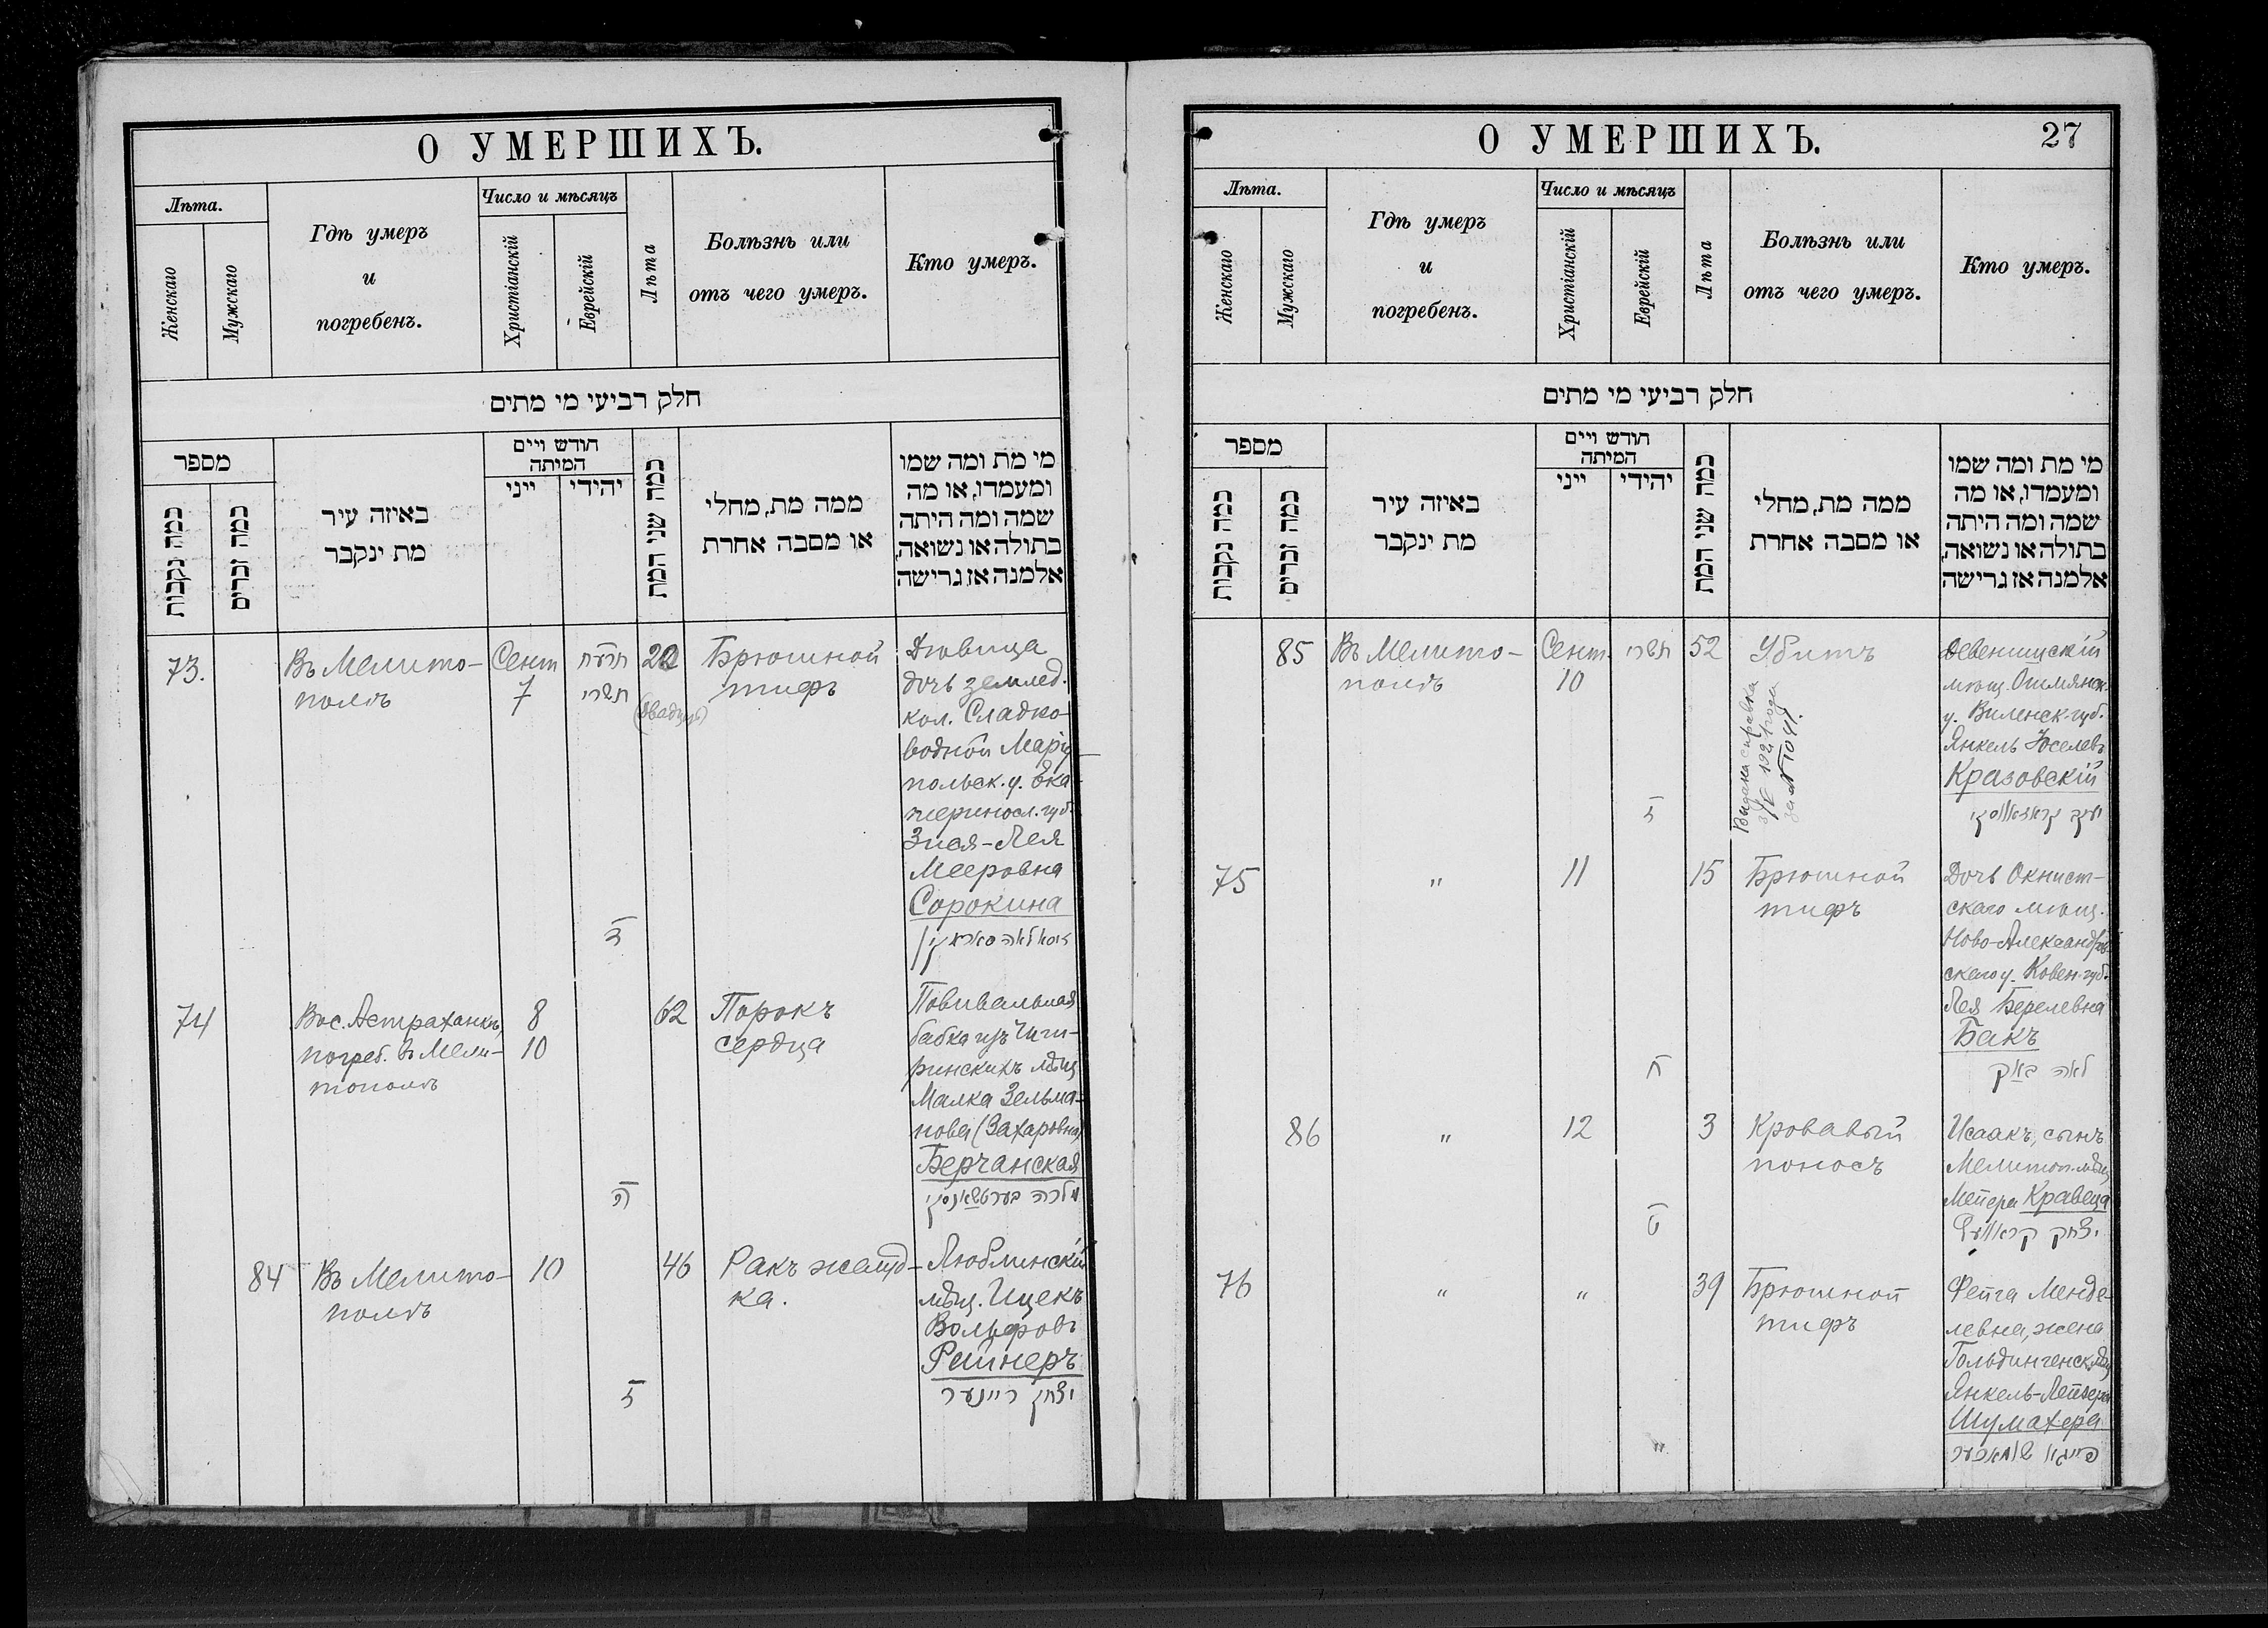 О УМЕРШИХЪ.
Лѣта.
Женскаго
Мужскаго
Гдѣ умеръ
и
погребенъ.
Число и мѣсяцъ
Христіанскій
Еврейскій
Лѣта
Болѣзнь или
отъ чего умеръ.
Кто умеръ.
חלק רביעי מי מתים
מספר
כמה נקבות
כמה זכרים
באיזה עיר
מת ינקבר
חודש ויים
המיתה
ייני
יהידי
כמה שני המת
ממה מת, מחלי
או מסבה אחרת
מי מת ומה שמו
ומעמדו, או מה
שמה ומה היתה
בתולה או נשואה,
אלמנה אז גרישה
73.
Въ Мелито-
полѣ
Сент
7
תרע״ח
תשרי
ד
20
(двадцать)
Брюшной
тифъ
Дѣвица
дочь землед.
кол. Сладко-
водной Маріу-
польск. у. Ека-
теринослав. губ.
Зися-Лея
Мееровна
Сорокина
74
Вос. Астраханкѣ,
погреб. въ Мели-
тополѣ
8
10
ה
62
Порокъ
сердца
Повивальная
бабка изъ Чиги-
ринскихъ мѣщ
Малка Зельма-
нова (Захаровна)
Берчанская
מלכה בערטשאנסקי
84
Въ Мелито-
полѣ
10
ז
46
Ракъ желуд-
ка.
Люблинскій
мѣщ. Ицекъ
Вольфовъ
Рейнеръ
יצחק ריינער
О УМЕРШИХЪ.
27
Лѣта.
Женскаго
Мужскаго
Гдѣ умеръ
и
погребенъ.
Число и мѣсяцъ
Христіанскій
Еврейскій
Лѣта
Болѣзнь или
отъ чего умеръ.
Кто умеръ.
חלק רביעי מי מתים
מספר
כמה נקבות
כמה זכרים
באיזה עיר
מת ינקבר
חודש ויים
המיתה
ייני
יהידי
כמה שני המת
ממה מת, מחלי
או מסבה אחרת
מי מת ומה שמו
ומעמדו, או מה
שמה ומה היתה
בתולה או נשואה,
אלמנה אז גרישה
85
Въ Мелито-
полѣ
Сент.
10
תשרי
ז
52
Убитъ
Выдана справка
1921 года
за № 1041.
Девенишскій
мѣщ. Ошмянск.
у. Виленск. губ.
Янкель Іоселевъ
Кразовскій
יעקב קראזאווסקי
75
"
11
ח
15
Брюшной
тифъ
Дочь Окнист-
скаго мѣщ.
Ново-Александров
скаго у. Ковен. губ.
Лея Берелевна
Бакъ
לאה באק
86
"
12
ט
3
Кровавый
поносъ
Исаакъ, сынъ
Мелитоп. мѣщ
Мейера Кравеца
יצחק קראוועץ
76
"
"
"
39
Брюшной
тифъ
Фейга Менде-
левна, жена
Гольдингенск. мѣщ
Янкель-Лейзера
Шумахера
פייגא שומאכער